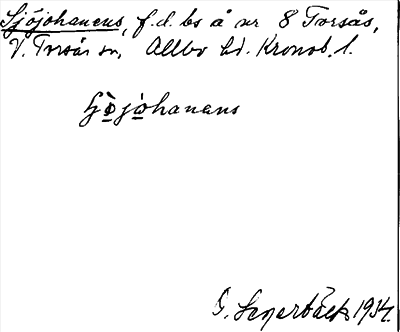 Sjöjohanens, f.d. bs å nr 8 Torsås,
V. Torsås sn, Allbo hd. Kronob. l.
Sjòjóhanens
G. Segerbäck 1934.